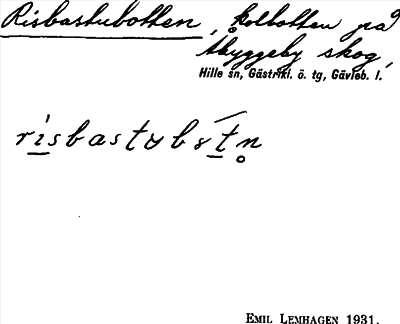 Risbastubotten, kolbotten på
Åbyggeby skog,
Hille sn, Gästrikl. ö. tg, Gävleb. l.
EMIL LEMHAGEN 1931.